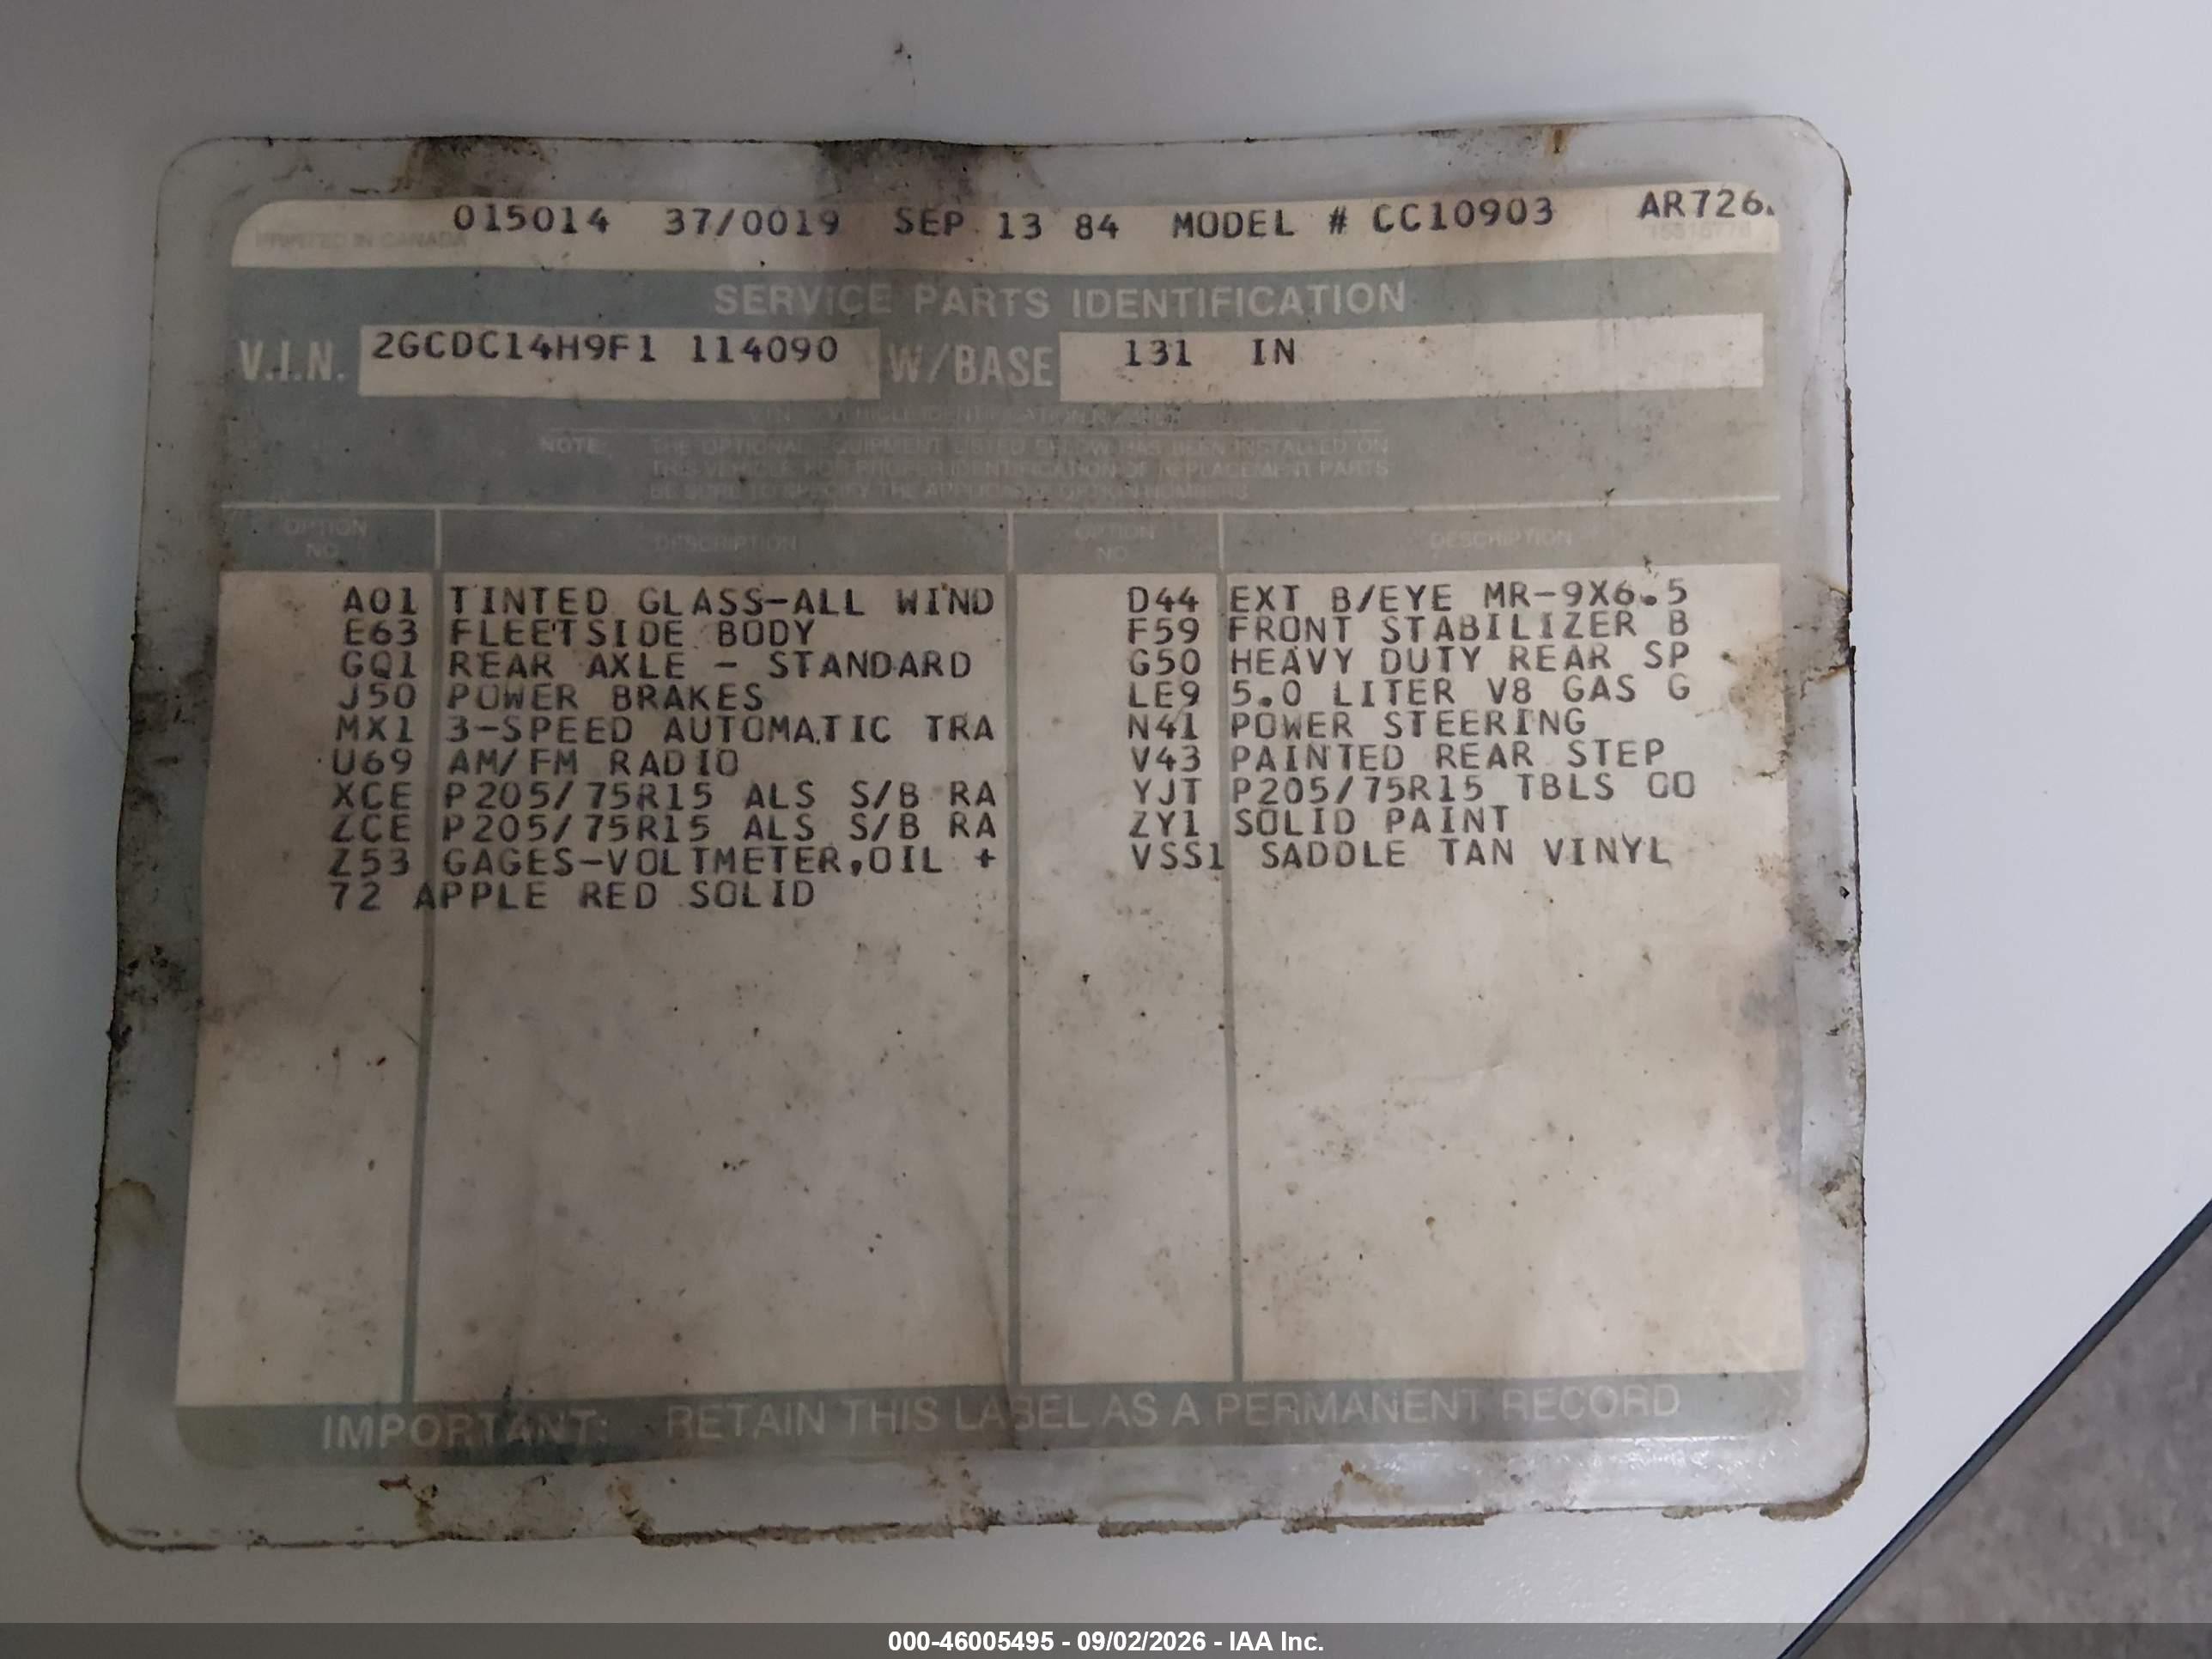 015014 37/0019 SEP 13 84 MODEL # CC10903 AR726
PRINTED IN CANADA
SERVICE PARTS IDENTIFICATION
V.I.N. 2GCDC14H9F1 114090 W/BASE 131 IN
VEHICLE IDENTIFICATION
NOTE: THE OPTIONAL EQUIPMENT LISTED BELOW HAS BEEN INSTALLED ON
THIS VEHICLE FOR PROPER IDENTIFICATION OF REPLACEMENT PARTS
BE SURE TO SPECIFY THE APPLICABLE OPTION NUMBERS
OPTION NO. DESCRIPTION OPTION NO. DESCRIPTION
A01 TINTED GLASS-ALL WIND D44 EXT B/EYE MR-9X6.5
E63 FLEETSIDE BODY F59 FRONT STABILIZER B
GQ1 REAR AXLE - STANDARD G50 HEAVY DUTY REAR SP
J50 POWER BRAKES LE9 5.0 LITER V8 GAS G
MX1 3-SPEED AUTOMATIC TRA N41 POWER STEERING
U69 AM/FM RADIO V43 PAINTED REAR STEP
XCE P205/75R15 ALS S/B RA YJT P205/75R15 TBLS GO
ZCE P205/75R15 ALS S/B RA ZY1 SOLID PAINT
Z53 GAGES-VOLTMETER,OIL + VSS1 SADDLE TAN VINYL
72 APPLE RED SOLID
IMPORTANT: RETAIN THIS LABEL AS A PERMANENT RECORD
000-46005495 - 09/02/2026 - IAA Inc.